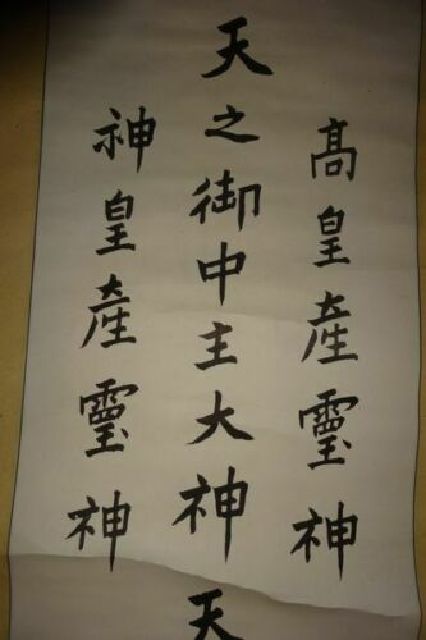 髙皇産靈神
天之御中主大神
天
神皇産靈神